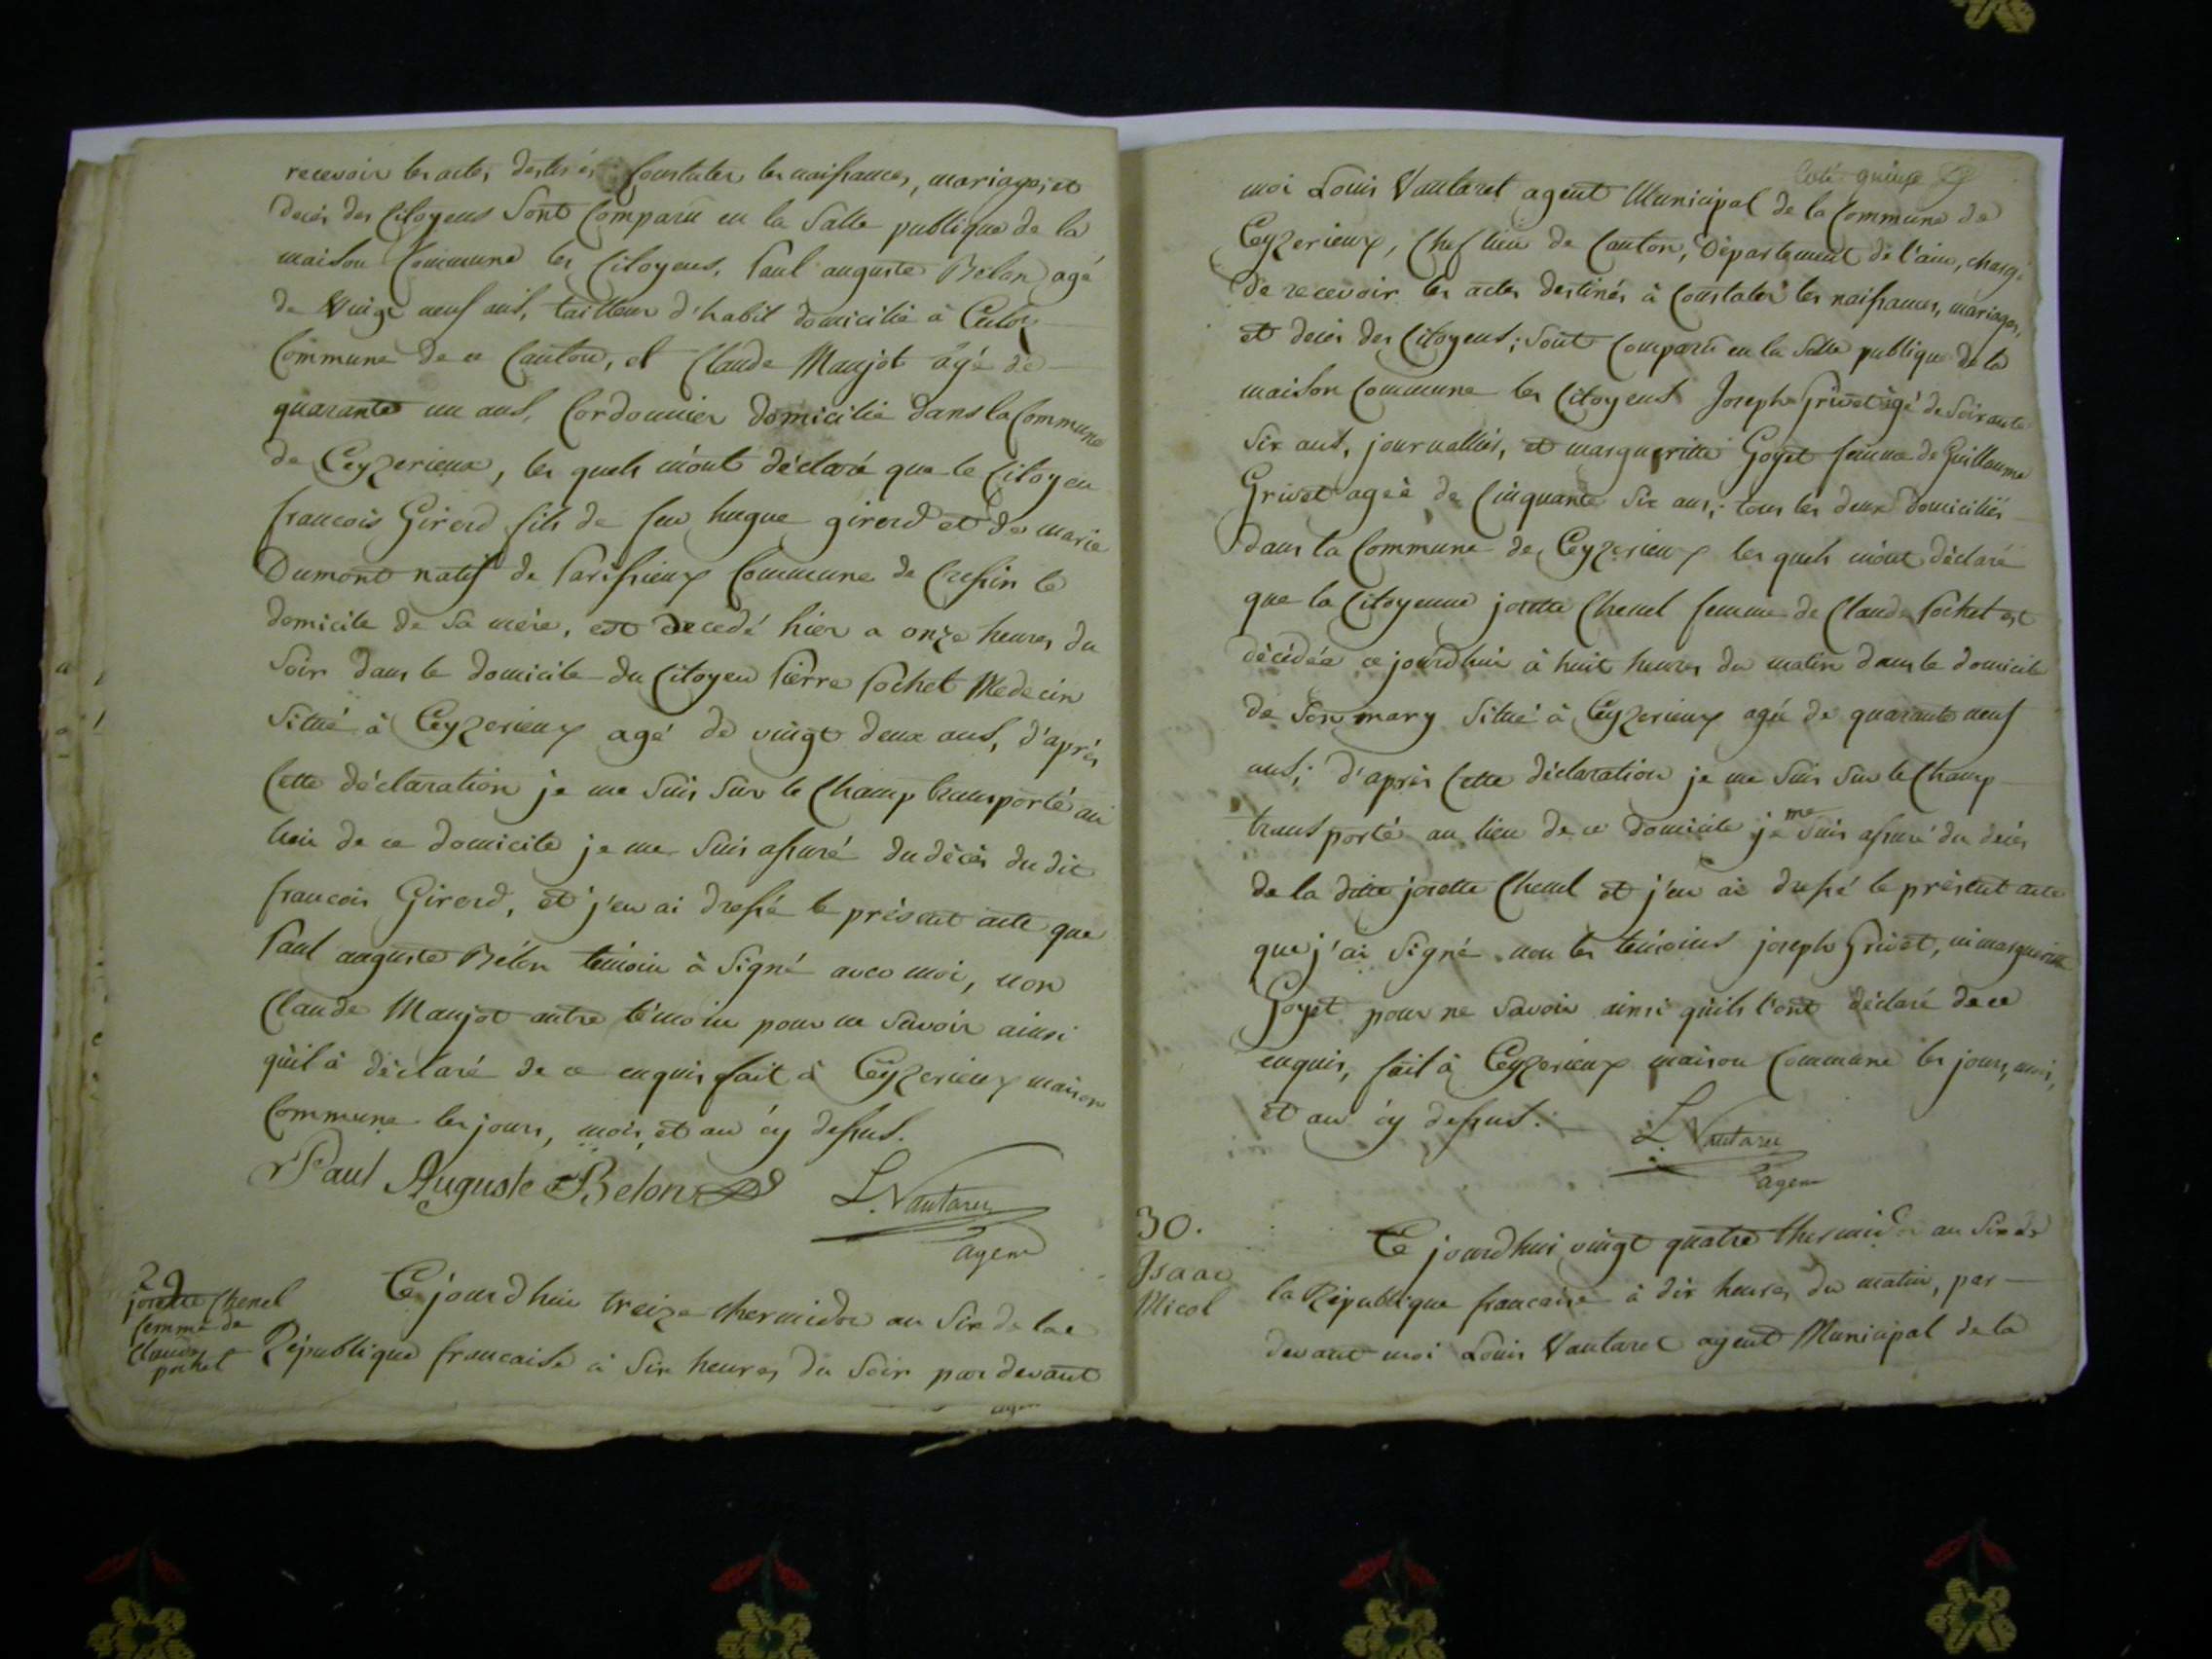 recevoir les actes destinés Constater les naissances, mariages, et
decés des Citoyens Sont Comparu en la Salle publique de la
maison Commune les Citoyens, Paul auguste Belon agé
de Vingt neuf ans, tailleur d'habit domicilié à Culoz
Commune de ce Canton, et Claude Maujot agé de
quarante un ans, Cordonnier domicilié dans la Commune
de Ceyzerieux, les quels m'ont déclaré que le Citoyen
francois Girerd fils de feu hugue girerd et de marie
Dumont natif de Parissieux Commune de Cressin le
domicile de Sa mère, est decedé hier a onze heures du
Soir dans le domicile du Citoyen Pierre Pochet Medecin
Situé à Ceyzerieux agé de vingt deux ans, d'après
Cette déclaration je me Suis Sur le Champ transporté au
lieu de ce domicile je me Suis assuré du décès du dit
francois Girerd, et j'en ai dressé le présent acte que
Paul auguste Bélon témoin à Signé avec moi, non
Claude Maujot autre témoin pour ne Savoir ainsi
qu'il à déclaré de ce enquis fait à Ceyzerieux maison
Commune les jours, mois, et an cy dessus.
Paul Auguste Belon
L. Vautaret
agent
29
josette Chenel
femme de
Claude
pochet
Ce jourd'hui treize thermidor an Six de la
République francaise à Six heures du Soir par devant
Coté quinze
moi Louis Vautaret agent Municipal de la Commune de
Ceyzerieux, Chef lieu de Canton, Département de l'ain, chargé
de recevoir les actes destinés à Constater les naissances, mariages,
et decés des Citoyens; Sont Comparu en la Salle publique de la
maison Commune les Citoyens Joseph Grivet agé de Soixante
Six ans, journallier, et margueritte Goyet femme de Guillaume
Grivet ageé de Cinquante Six ans; tous les deux domiciliés
dans la Commune de Ceyzerieux les quels m'ont déclaré
que la Citoyenne josette Chenel femme de Claude Pochet est
décédée ce jourd'hui à huit heures du matin dans le domicile
de Son mary Situé à Ceyzerieux agée de quarante neuf
ans; d'après Cette déclaration je me Suis Sur le Champ
transporté au lieu de ce domicile je me Suis assuré du decès
de la ditte josette Chenel et j'en ai dressé le présent acte
que j'ai Signé non les témoins joseph Grivet, ni margueritte
Goyet pour ne Savoir ainsi qu'ils l'ont déclaré de ce
enquis, fait à Ceyzerieux maison Commune les jours, mois,
et an cy dessus.
L. Vautaret
agent
30.
Isaac
Micol
Ce jourd'hui vingt quatre thermidor an Six de
la République francaise à dix heures du matin, par
devant moi Louis Vautaret agent Municipal de la